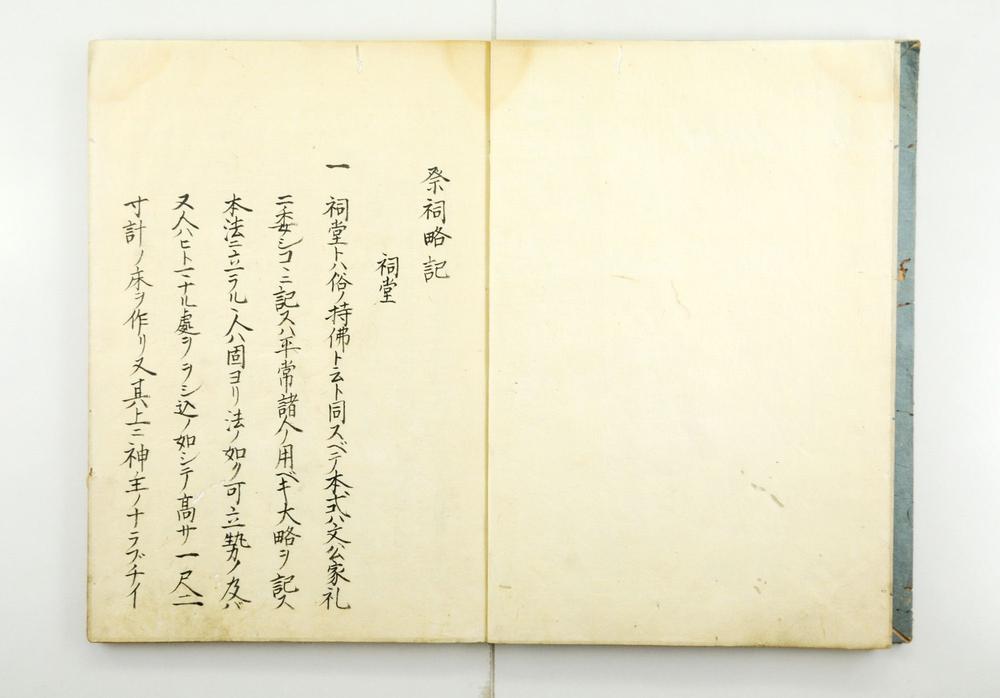 祭祠略記
祠堂
一 祠堂トハ俗ノ持佛ト云ト同スベテ本式ハ文公家礼
ニ委シコヽニ記スハ平常諸人ノ用ベキ大略ヲ記ス
本法ニ立ラルヽ人ハ固ヨリ法ノ如ク可立勢ノ及バ
又人ハヒト間ナル處ヲヲシ込ノ如シテ高サ一尺二
寸計ノ床ヲ作リ又其上ニ神主ノナラブチイ